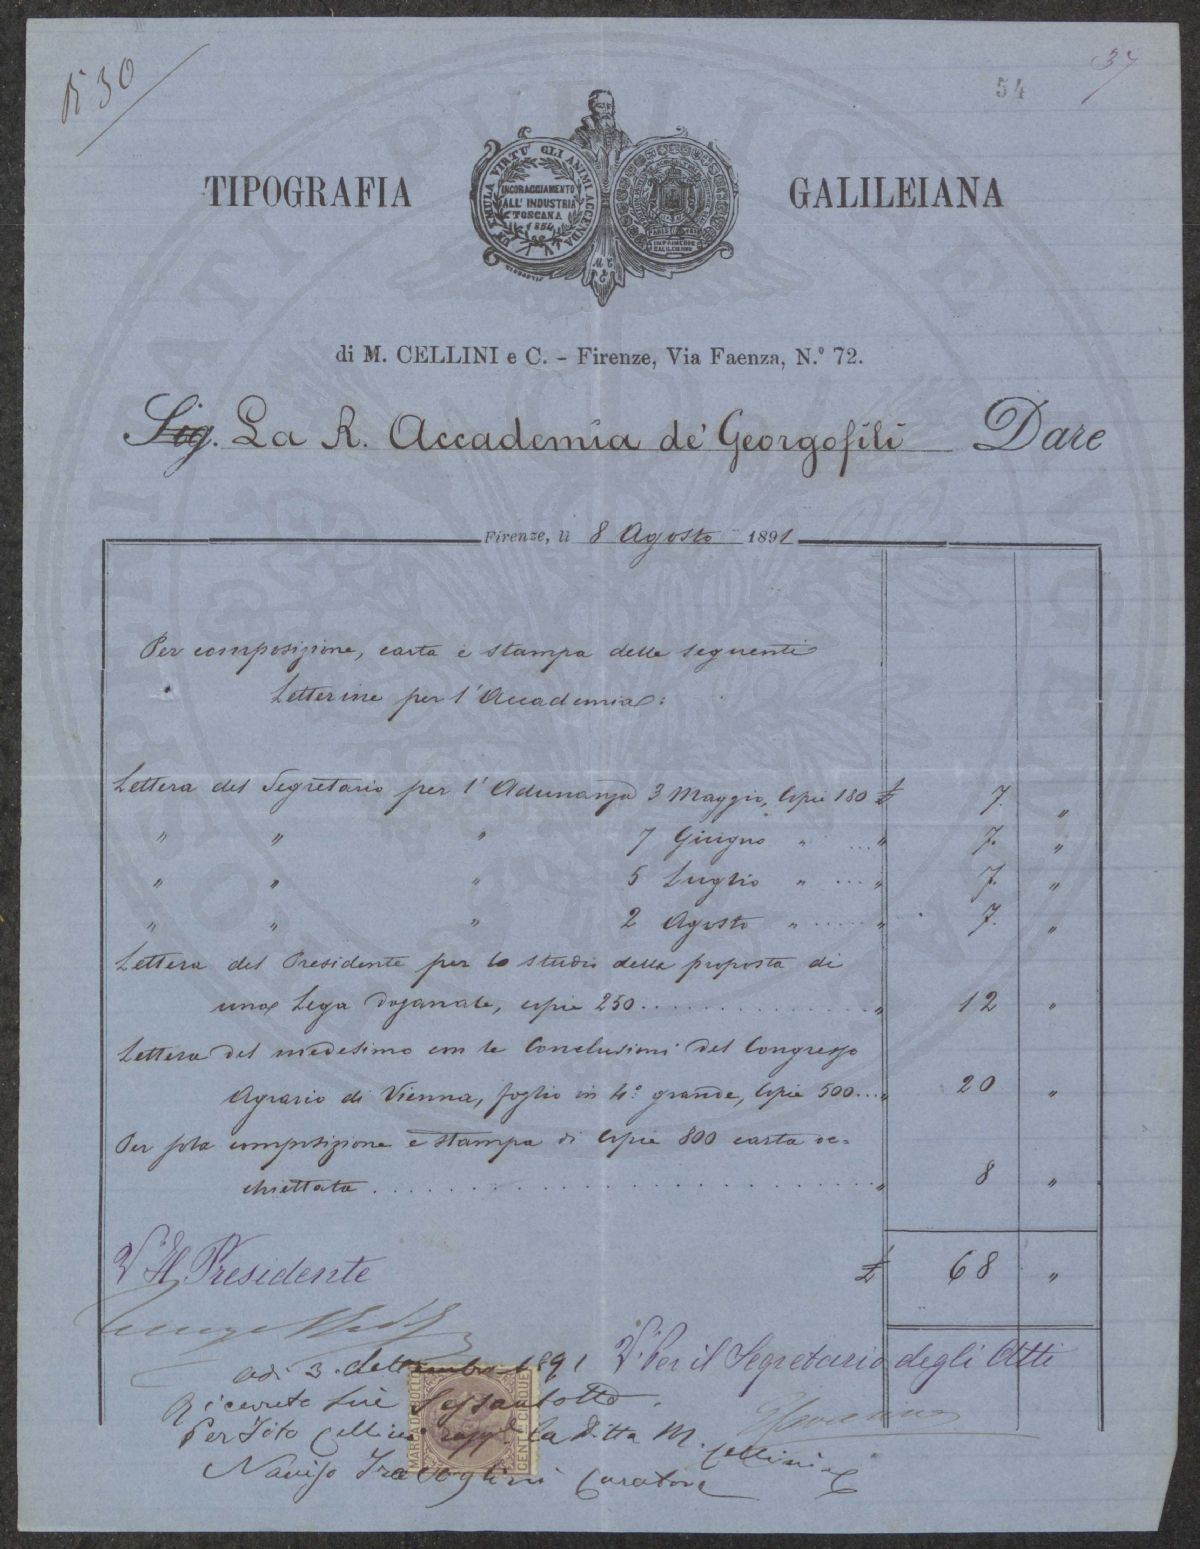 N° 30
37
54
TIPOGRAFIA GALILEIANA
VIRTÙ GLI ANIMI ACCENDA
INCORAGGIAMENTO
ALL' INDUSTRIA
TOSCANA
1854
di M. CELLINI e C. - Firenze, Via Faenza, N.° 72.
Sig. La R. Accademia de' Georgofili Dare
Firenze, li 8 Agosto 1891
Per composizione, carta e stampa delle seguenti
Letterine per l'Accademia:
Lettera del Segretario per l'Adunanza 3 Maggio, Copie 180 £ 7. "
" " " 7 Giugno " ... " 7. "
" " " 5 Luglio " ... " 7. "
" " " 2 Agosto " ..... " 7. "
Lettera del Presidente per lo studio della proposta di
una Lega doganale, copie 250 ............ " 12 "
Lettera del medesimo con le Conclusioni del Congresso
Agrario di Vienna, foglio in 4.° grande, Copie 500 ... " 20 "
Per sola composizione e stampa di Copie 800 carta oc=
chiettata ........................ " 8 "
£ 68 "
V° Il Presidente
V° Per il Segretario degli Atti
adi 3 Settembre 1891
Ricevuto Lire Sessantotto
Per Tito Cellini rapp. la Ditta M. Cellini e C
Curatore
MARCA DA BOLLO
CENT.MI CINQUE